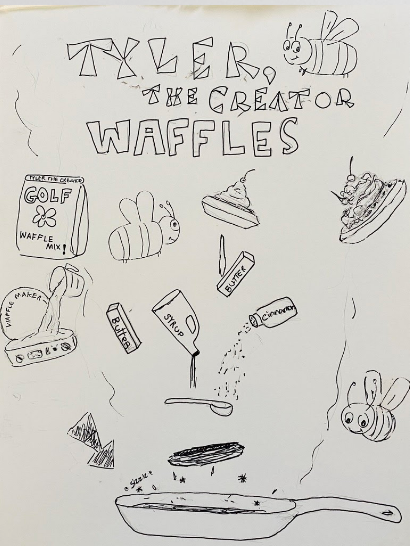 TYLER,
THE CREATOR
WAFFLES
TYLER THE CREATOR
GOLF
WAFFLE
MIX!
WAFFLE MAKER
BUTTER
BUTTER
SYRUP
Cinnamon
sizzle